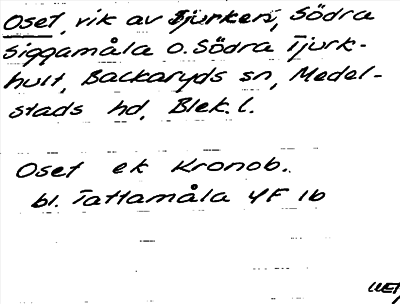 Oset, vik av Tjurken, Södra
Siggamåla o. Södra Tjurk-
hult, Backaryds sn, Medel-
stads hd, Blek. l.
Oset ek Kronob.
bl. Tattamåla 4F 1b